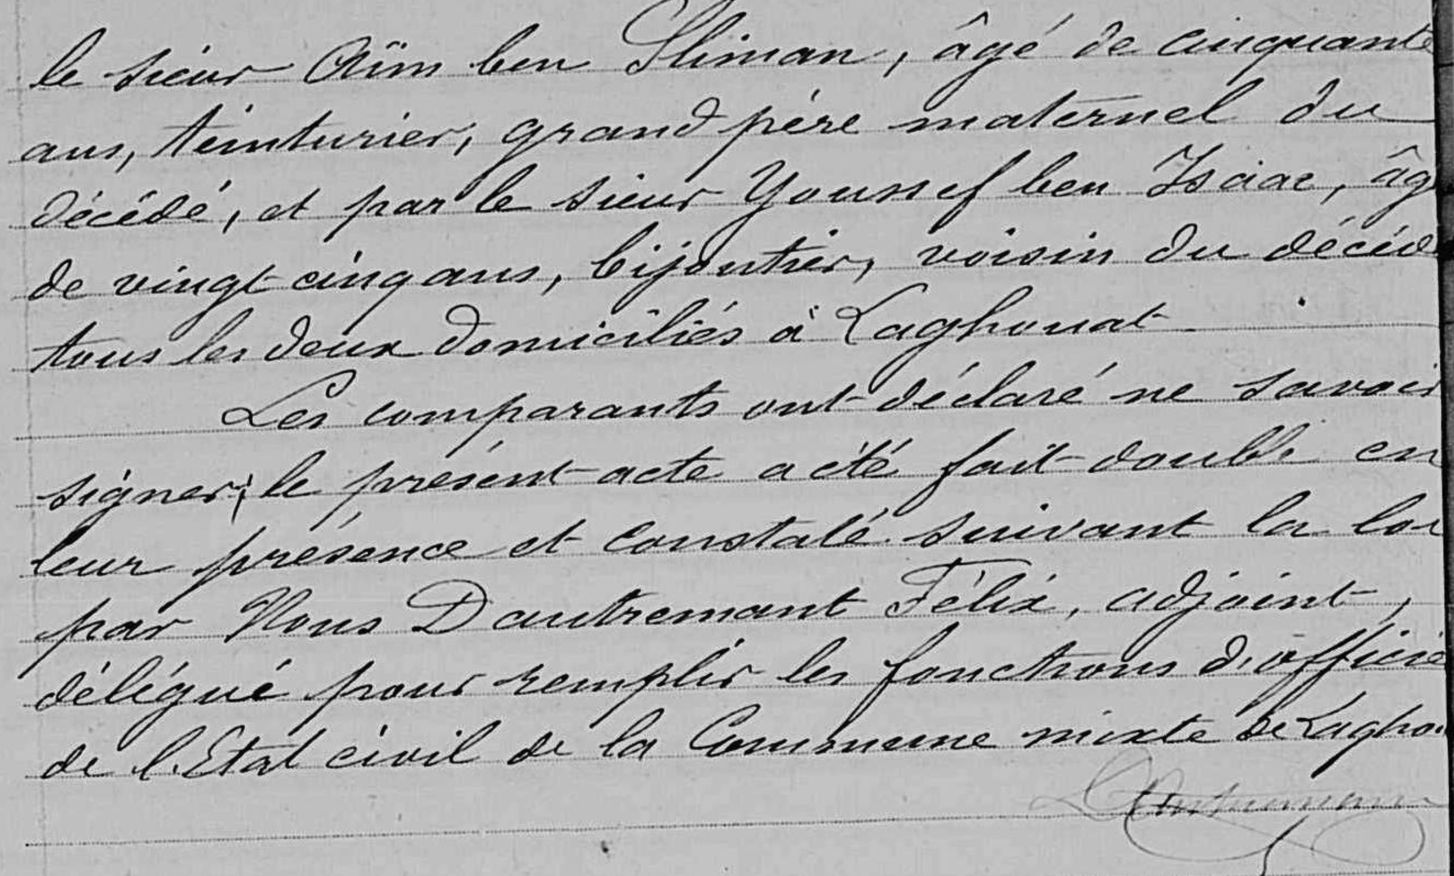 le sieur Aïm ben Sliman, âgé de cinquante
ans, teinturier, grand père maternel du
décédé, et par le sieur Youssef ben Isaac, âg
de vingt cinq ans, bijoutier, voisin du décéd
tous les deux domiciliés à Laghouat.
Les comparants ont déclaré ne savoir
signer; le présent acte a été fait double en
leur présence et constaté suivant la loi
par Nous Dautremant Félix, adjoint,
délégué pour remplir les fonctions d'officie
de l'Etat civil de la Commune mixte de Laghou